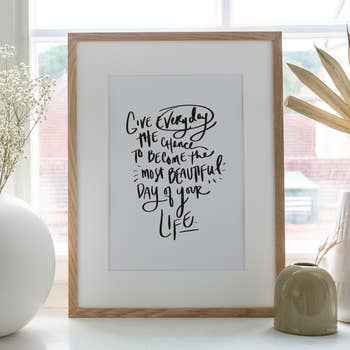 GIVE EVERYDAY
THE CHANCE
TO BECOME THE
MOST BEAUTIFUL
DAY of YOUR
LIFE.